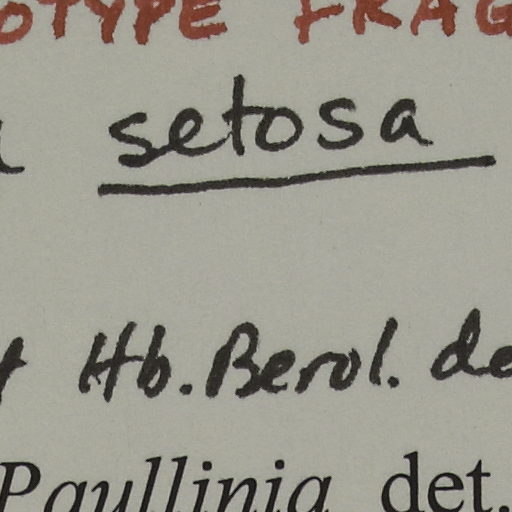 OTYPE FRAG
setosa
Hb. Berol. de
Paullinia det.